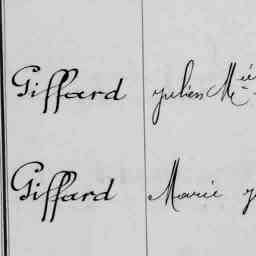 Giffard Julien M
Giffard Marie